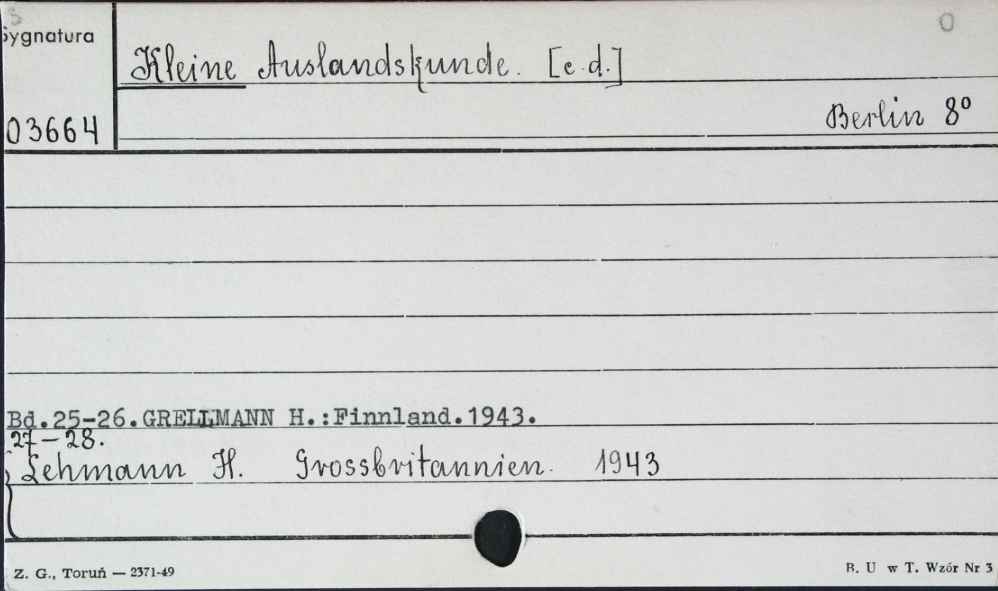 S
O
Sygnatura
Kleine Auslandskunde. [c.d.]
03664
Berlin 8°
Bd.25-26.GRELLMANN H.:Finnland.1943.
27-28.
Lehmann H. Grossbritannien. 1943
Z. G., Toruń — 2371-49
B. U w T. Wzór Nr 3